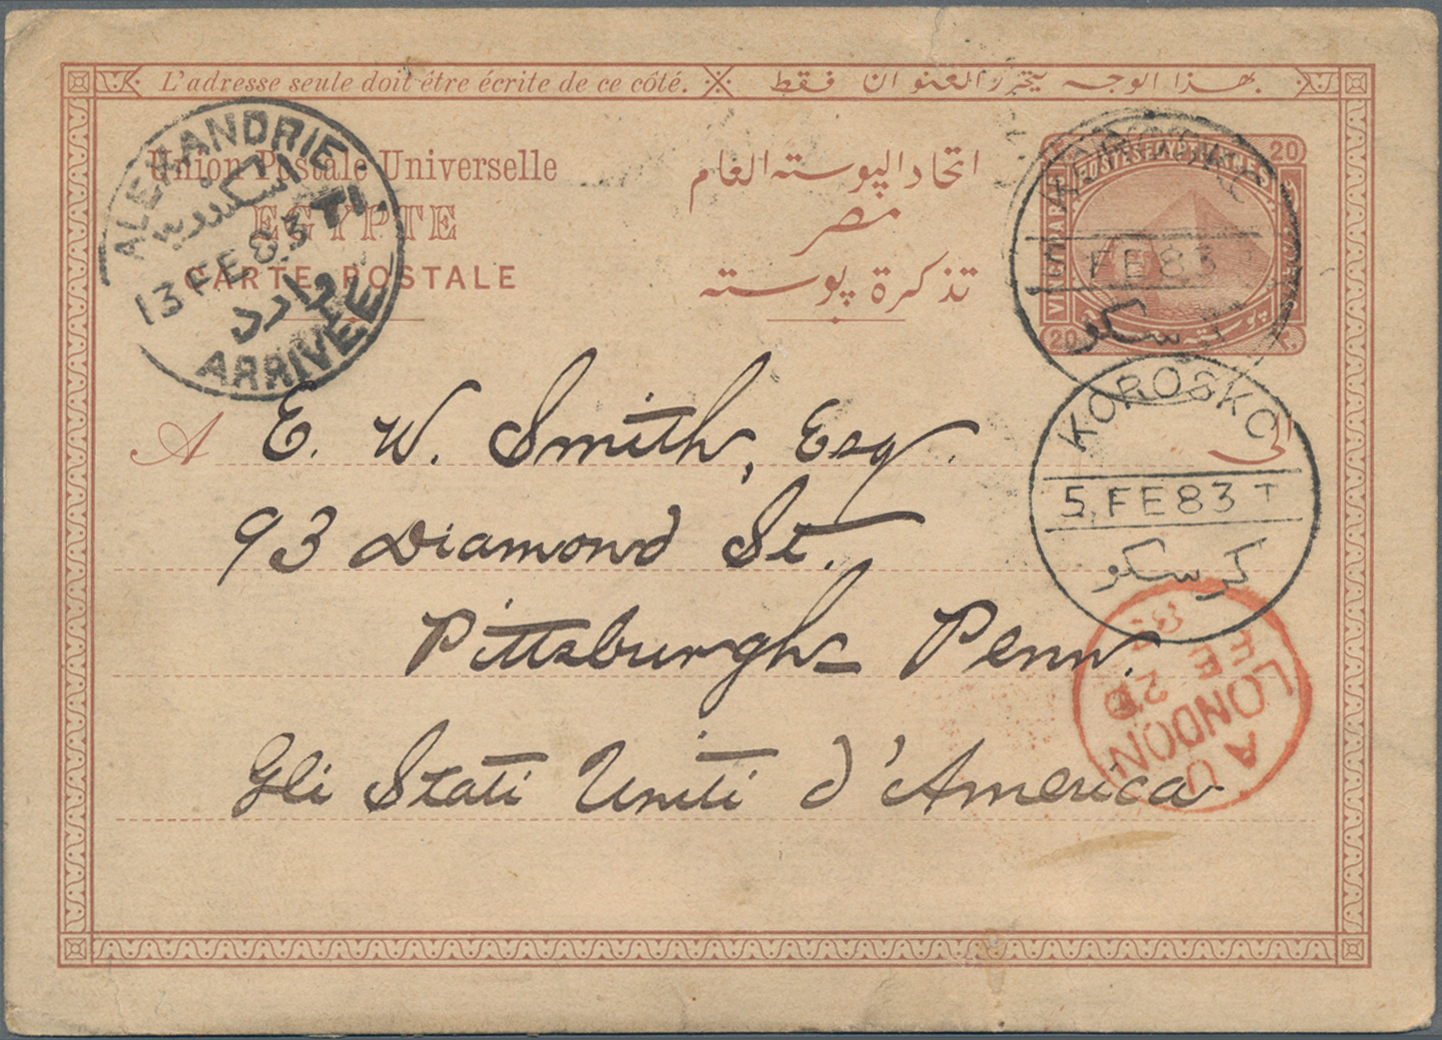 L'adresse seule doit être écrite de ce côté. بهذا الوجه يتحرر العنوان فقط
Union Postale Universelle
اتحاد البوسته العام
EGYPTE
مصر
CARTE POSTALE
تذكرة بوسته
ALEXANDRIE
اسكندرية
13 FE 83 T1
وارده
ARRIVEE
20 20
FE 83
كرسكو
20
KOROSKO
5 FE 83 T
كرسكو
A E. W. Smith, Esq. الى
93 Diamond St.
Pittsburgh Penn.
Gli Stati Uniti d'America
LONDON
A U
FE